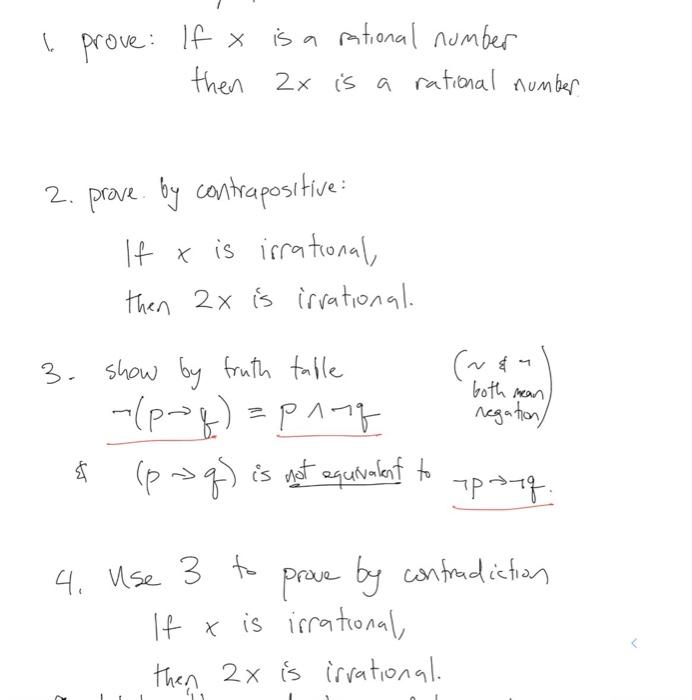 1. prove: If x is a rational number
then 2x is a rational number
2. prove by contrapositive:
If x is irrational,
then 2x is irrational.
3. show by truth table
¬(p→q) ≡ p∧¬q
(~ & ¬
both mean
negation)
& (p→q) is not equivalent to ¬p→¬q.
4. Use 3 to prove by contradiction
If x is irrational,
then 2x is irrational.